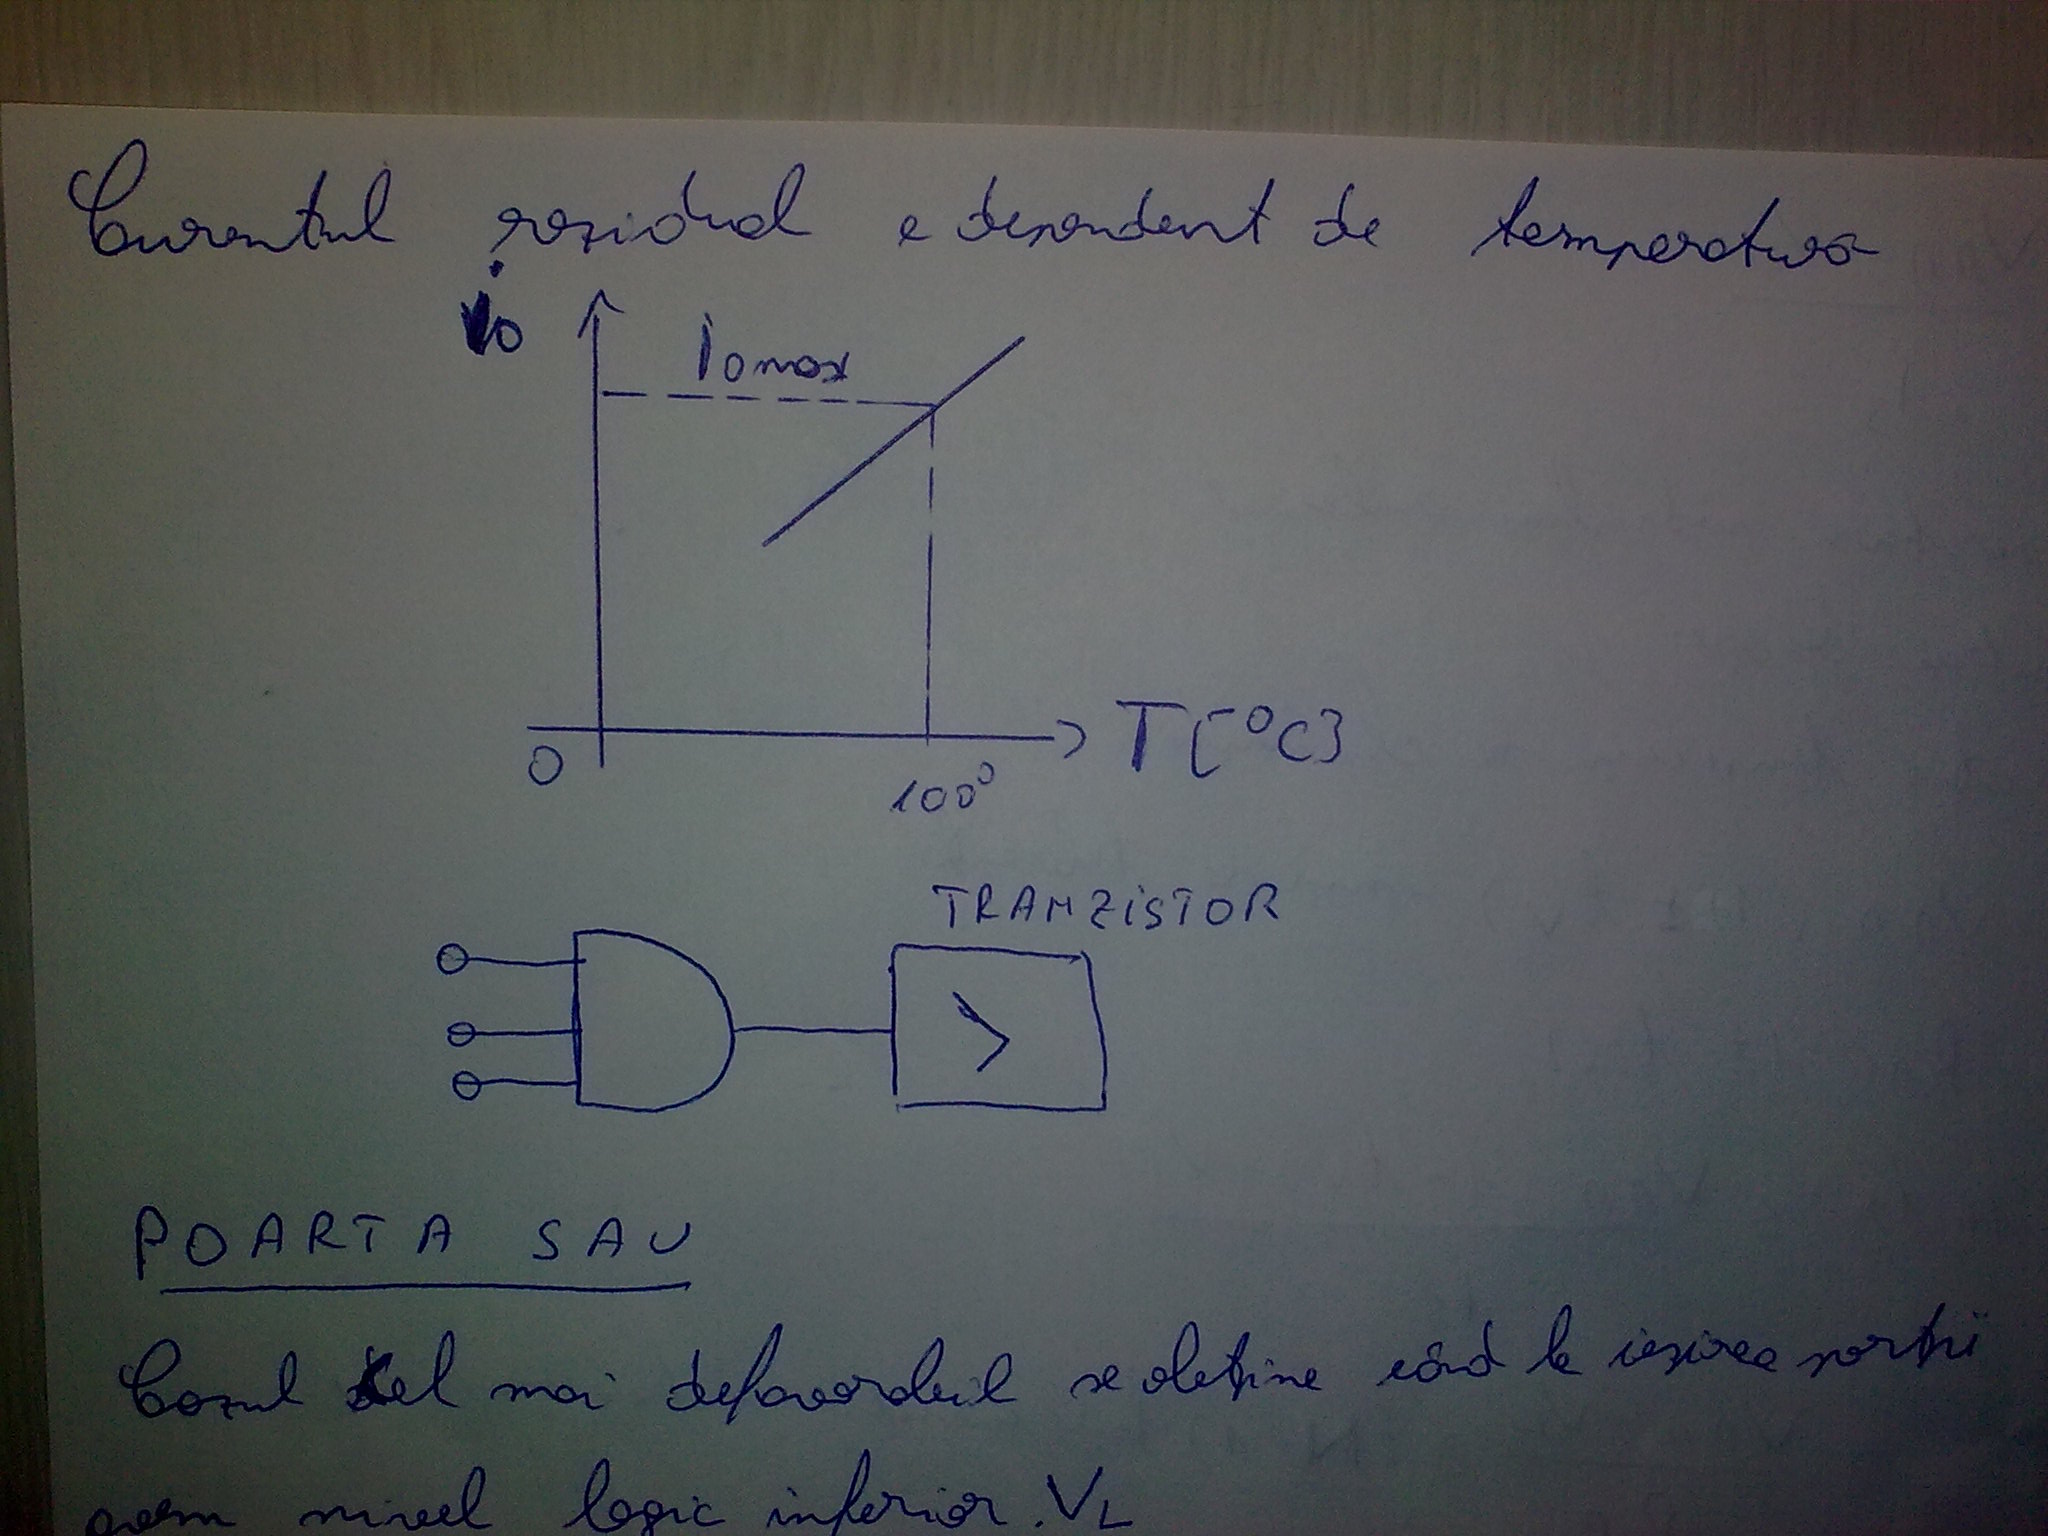 Curentul rezidual e dependent de temperatură
i0
i0max
0
100°
T[°C]
TRANZISTOR
>
POARTA SAU
Cazul cel mai defavorabil se obține când la ieșirea porții
avem nivel logic inferior. VL